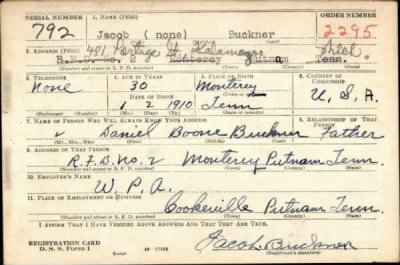 SERIAL NUMBER 1. NAME (Print) ORDER NUMBER
792 Jacob (none) Buckner 2295
(First) (Middle) (Last)
2. ADDRESS (Print) 481 Portage St. Kalamazoo Mich
R.F.D. No. 2 Monterey Putnam Tenn.
(Number and street or R. F. D. number) (Town) (County) (State)
3. TELEPHONE 4. AGE IN YEARS 5. PLACE OF BIRTH 6. COUNTRY OF CITIZENSHIP
None 30 Monterey U. S. A.
DATE OF BIRTH (Town or county)
1 2 1910 Tenn
(Exchange) (No.) (Mo.) (Day) (Yr.) (State or country)
7. NAME OF PERSON WHO WILL ALWAYS KNOW YOUR ADDRESS 8. RELATIONSHIP OF THAT PERSON
Daniel Boone Buckner Father
(Mr., Mrs., Miss) (First) (Middle) (Last)
9. ADDRESS OF THAT PERSON
R.F.D. No. 2 Monterey Putnam Tenn.
(Number and street or R. F. D. number) (Town) (County) (State)
10. EMPLOYER'S NAME
W. P. A.
11. PLACE OF EMPLOYMENT OR BUSINESS
Cookeville Putnam Tenn.
(Number and street or R. F. D. number) (Town) (County) (State)
I AFFIRM THAT I HAVE VERIFIED ABOVE ANSWERS AND THAT THEY ARE TRUE.
REGISTRATION CARD Jacob Buckner
D. S. S. Form 1 (Registrant's signature)